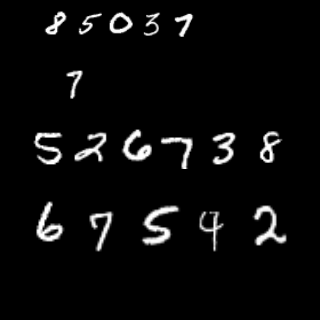 85037
7
526738
67542